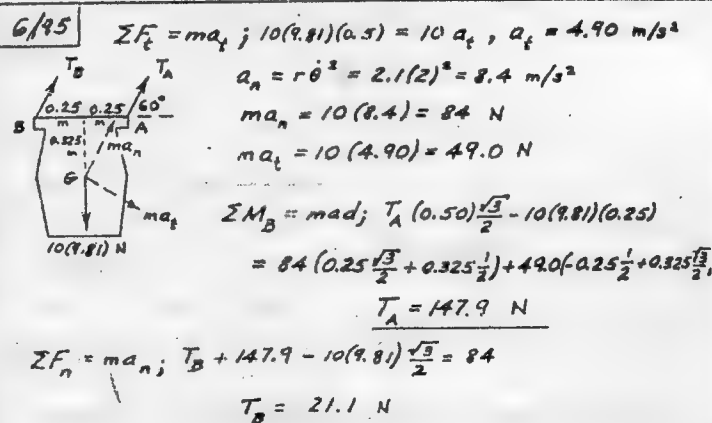 6/95
ΣF_t = ma_t ; 10(9.81)(0.5) = 10 a_t , a_t = 4.90 m/s²
a_n = r θ̇² = 2.1(2)² = 8.4 m/s²
ma_n = 10(8.4) = 84 N
ma_t = 10(4.90) = 49.0 N
T_B T_A
0.25 m 0.25 m 60°
B A
0.325 m
ma_n
G
ma_t
10(9.81) N
ΣM_B = mad; T_A (0.50) √3/2 - 10(9.81)(0.25)
= 84 (0.25 √3/2 + 0.325 1/2) + 49.0(-0.25 1/2 + 0.325 √3/2)
T_A = 147.9 N
ΣF_n = ma_n ; T_B + 147.9 - 10(9.81) √3/2 = 84
T_B = 21.1 N